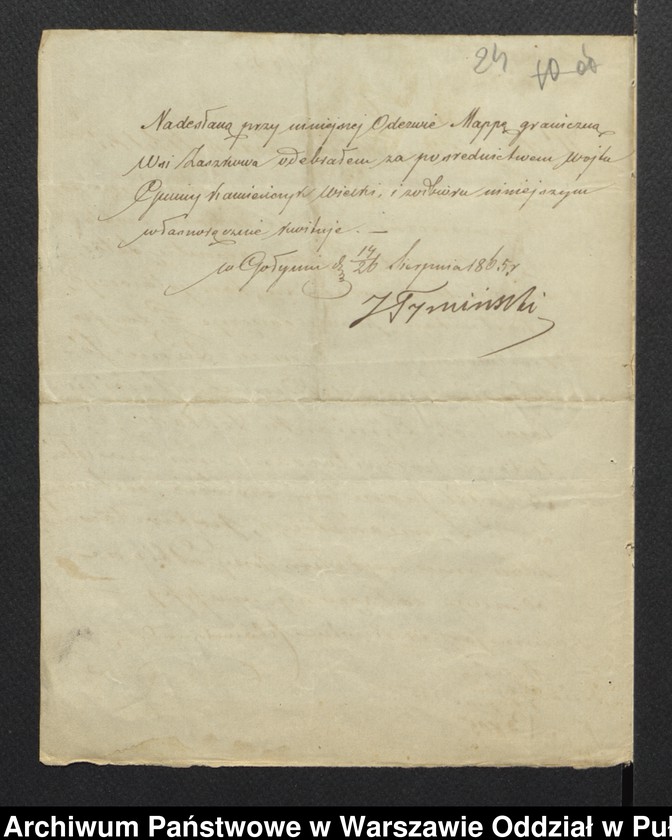 24
Nadesłaną przy niniejszej Odezwie Mappę graniczną
Wsi Zaszkowa odebrałem za posrednictwem Wojta
Gminy Kamieńczyk Wielki, i z odbioru niniejszym
własnoręcznie kwituje. —
w Gołyniu d. 14/26 Sierpnia 1865 r
J Tyminski
Archiwum Państwowe w Warszawie Oddział w Pu